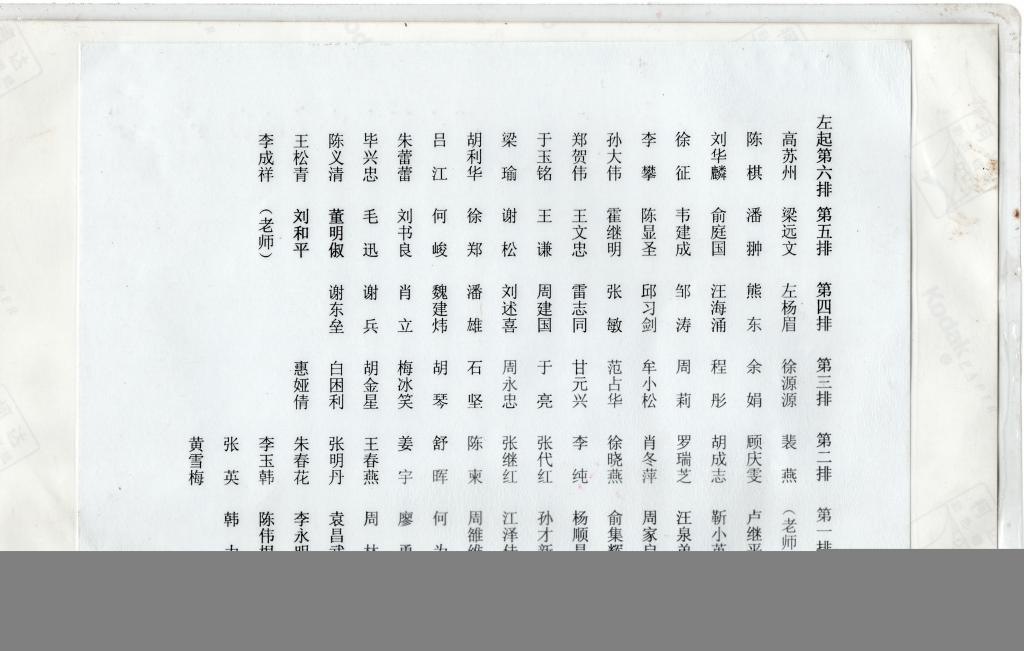 左起第六排 第五排 第四排 第三排 第二排 第一排
高苏州 梁远文 左杨眉 徐源源 裴燕 （老师
陈棋 潘翀 熊东 余娟 顾庆雯 卢继平
刘华麟 俞庭国 汪海涌 程彤 胡成志 靳小英
徐征 韦建成 邹涛 周莉 罗瑞芝 汪泉弟
李攀 陈显圣 邱习剑 牟小松 肖冬萍 周家
孙大伟 霍继明 张敏 范占华 徐晓燕 俞集辉
郑贺伟 王文忠 雷志同 甘元兴 李纯 杨顺昌
于玉铭 王谦 周建国 于亮 张代红 孙才新
梁瑜 谢松 刘述喜 周永忠 张继红 江泽佳
胡利华 徐郑 潘雄 石坚 陈柬 周雒维
吕江 何峻 魏建炜 胡琴 舒晖 何为
朱蕾蕾 刘书良 肖立 梅冰笑 姜宇 廖勇
毕兴忠 毛迅 谢兵 胡金星 王春燕 周林
陈义清 董明俶 谢东垒 白困利 张明丹 袁昌
王松青 刘和平 惠娅倩 朱春花 李永明
李成祥 （老师） 李玉韩 陈伟根
张英 韩力
黄雪梅
Kodak